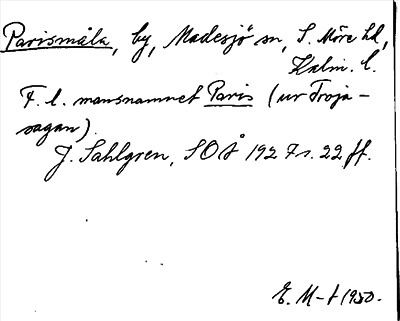 Parismåla, by, Madesjö sn, S. Möre hd,
Kalm. l.
F. l. mansnamnet Paris (ur Troja-
sagan).
J. Sahlgren, SOÅ 1927 s. 22 ff.
E. M-t 1950.